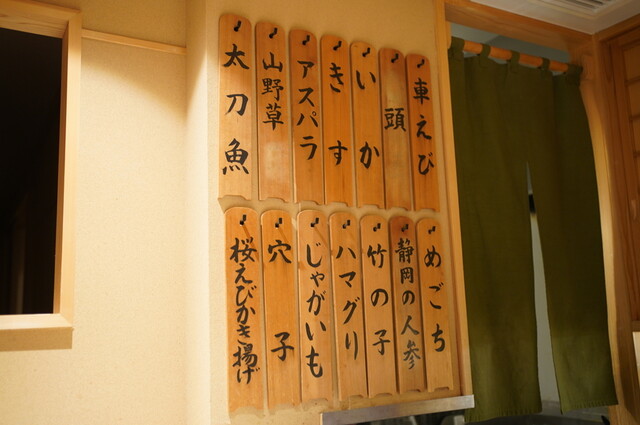 車えび
頭
いか
きす
アスパラ
山野草
太刀魚
めごち
静岡の人参
竹の子
ハマグリ
じゃがいも
穴子
桜えびかき揚げ